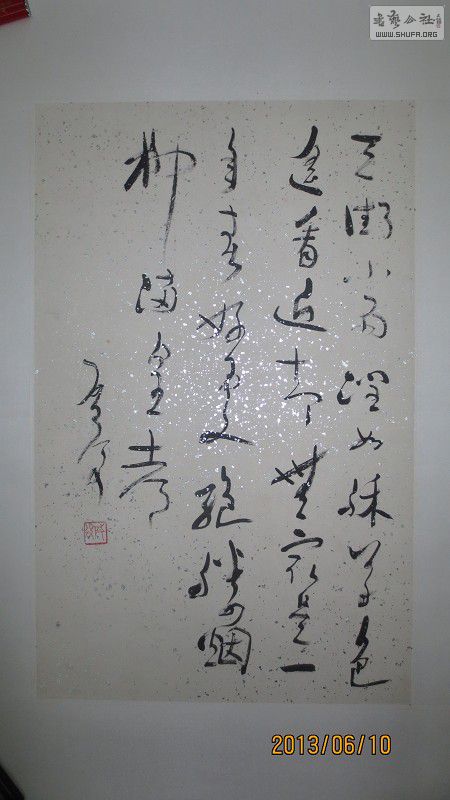 書藝公社
WWW.SHUFA.ORG
天街小雨潤如酥草色
遥看近却無最是一
年春好處絕勝烟
柳滿皇都
2013/06/10